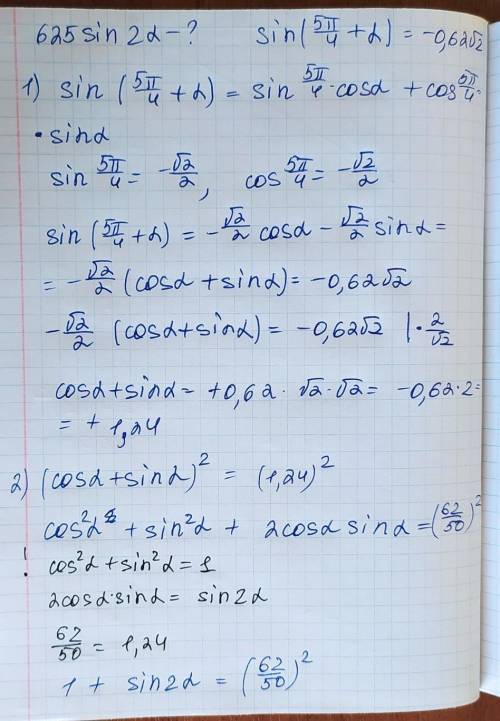 625 sin 2α - ? sin(5π/4 + α) = -0,62√2
1) sin (5π/4 + α) = sin 5π/4 · cosα + cos 5π/4 ·
· sinα
sin 5π/4 = -√2/2, cos 5π/4 = -√2/2
sin (5π/4 + α) = -√2/2 cosα - √2/2 sinα =
= -√2/2 (cosα + sinα) = -0,62√2
-√2/2 (cosα + sinα) = -0,62√2 | · 2/√2
cosα + sinα = +0,62 · √2 · √2 = -0,62 · 2 =
= + 1,24
2) (cosα + sinα)² = (1,24)²
cos²α + sin²α + 2cosα sinα = (62/50)²
! cos²α + sin²α = 1
2cosα·sinα = sin2α
62/50 = 1,24
1 + sin2α = (62/50)²